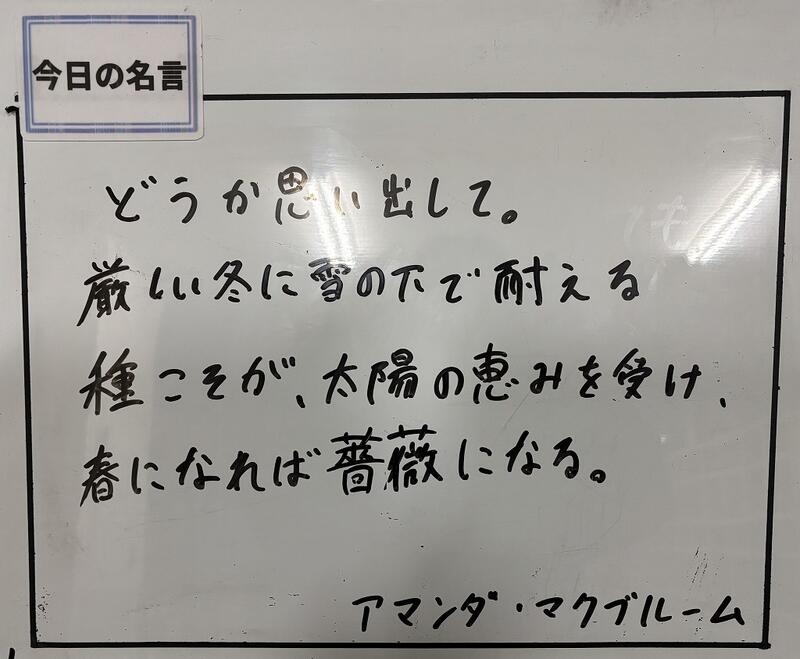 今日の名言
どうか思い出して。
厳しい冬に雪の下で耐える
種こそが、太陽の恵みを受け、
春になれば薔薇になる。
アマンダ・マクブルーム